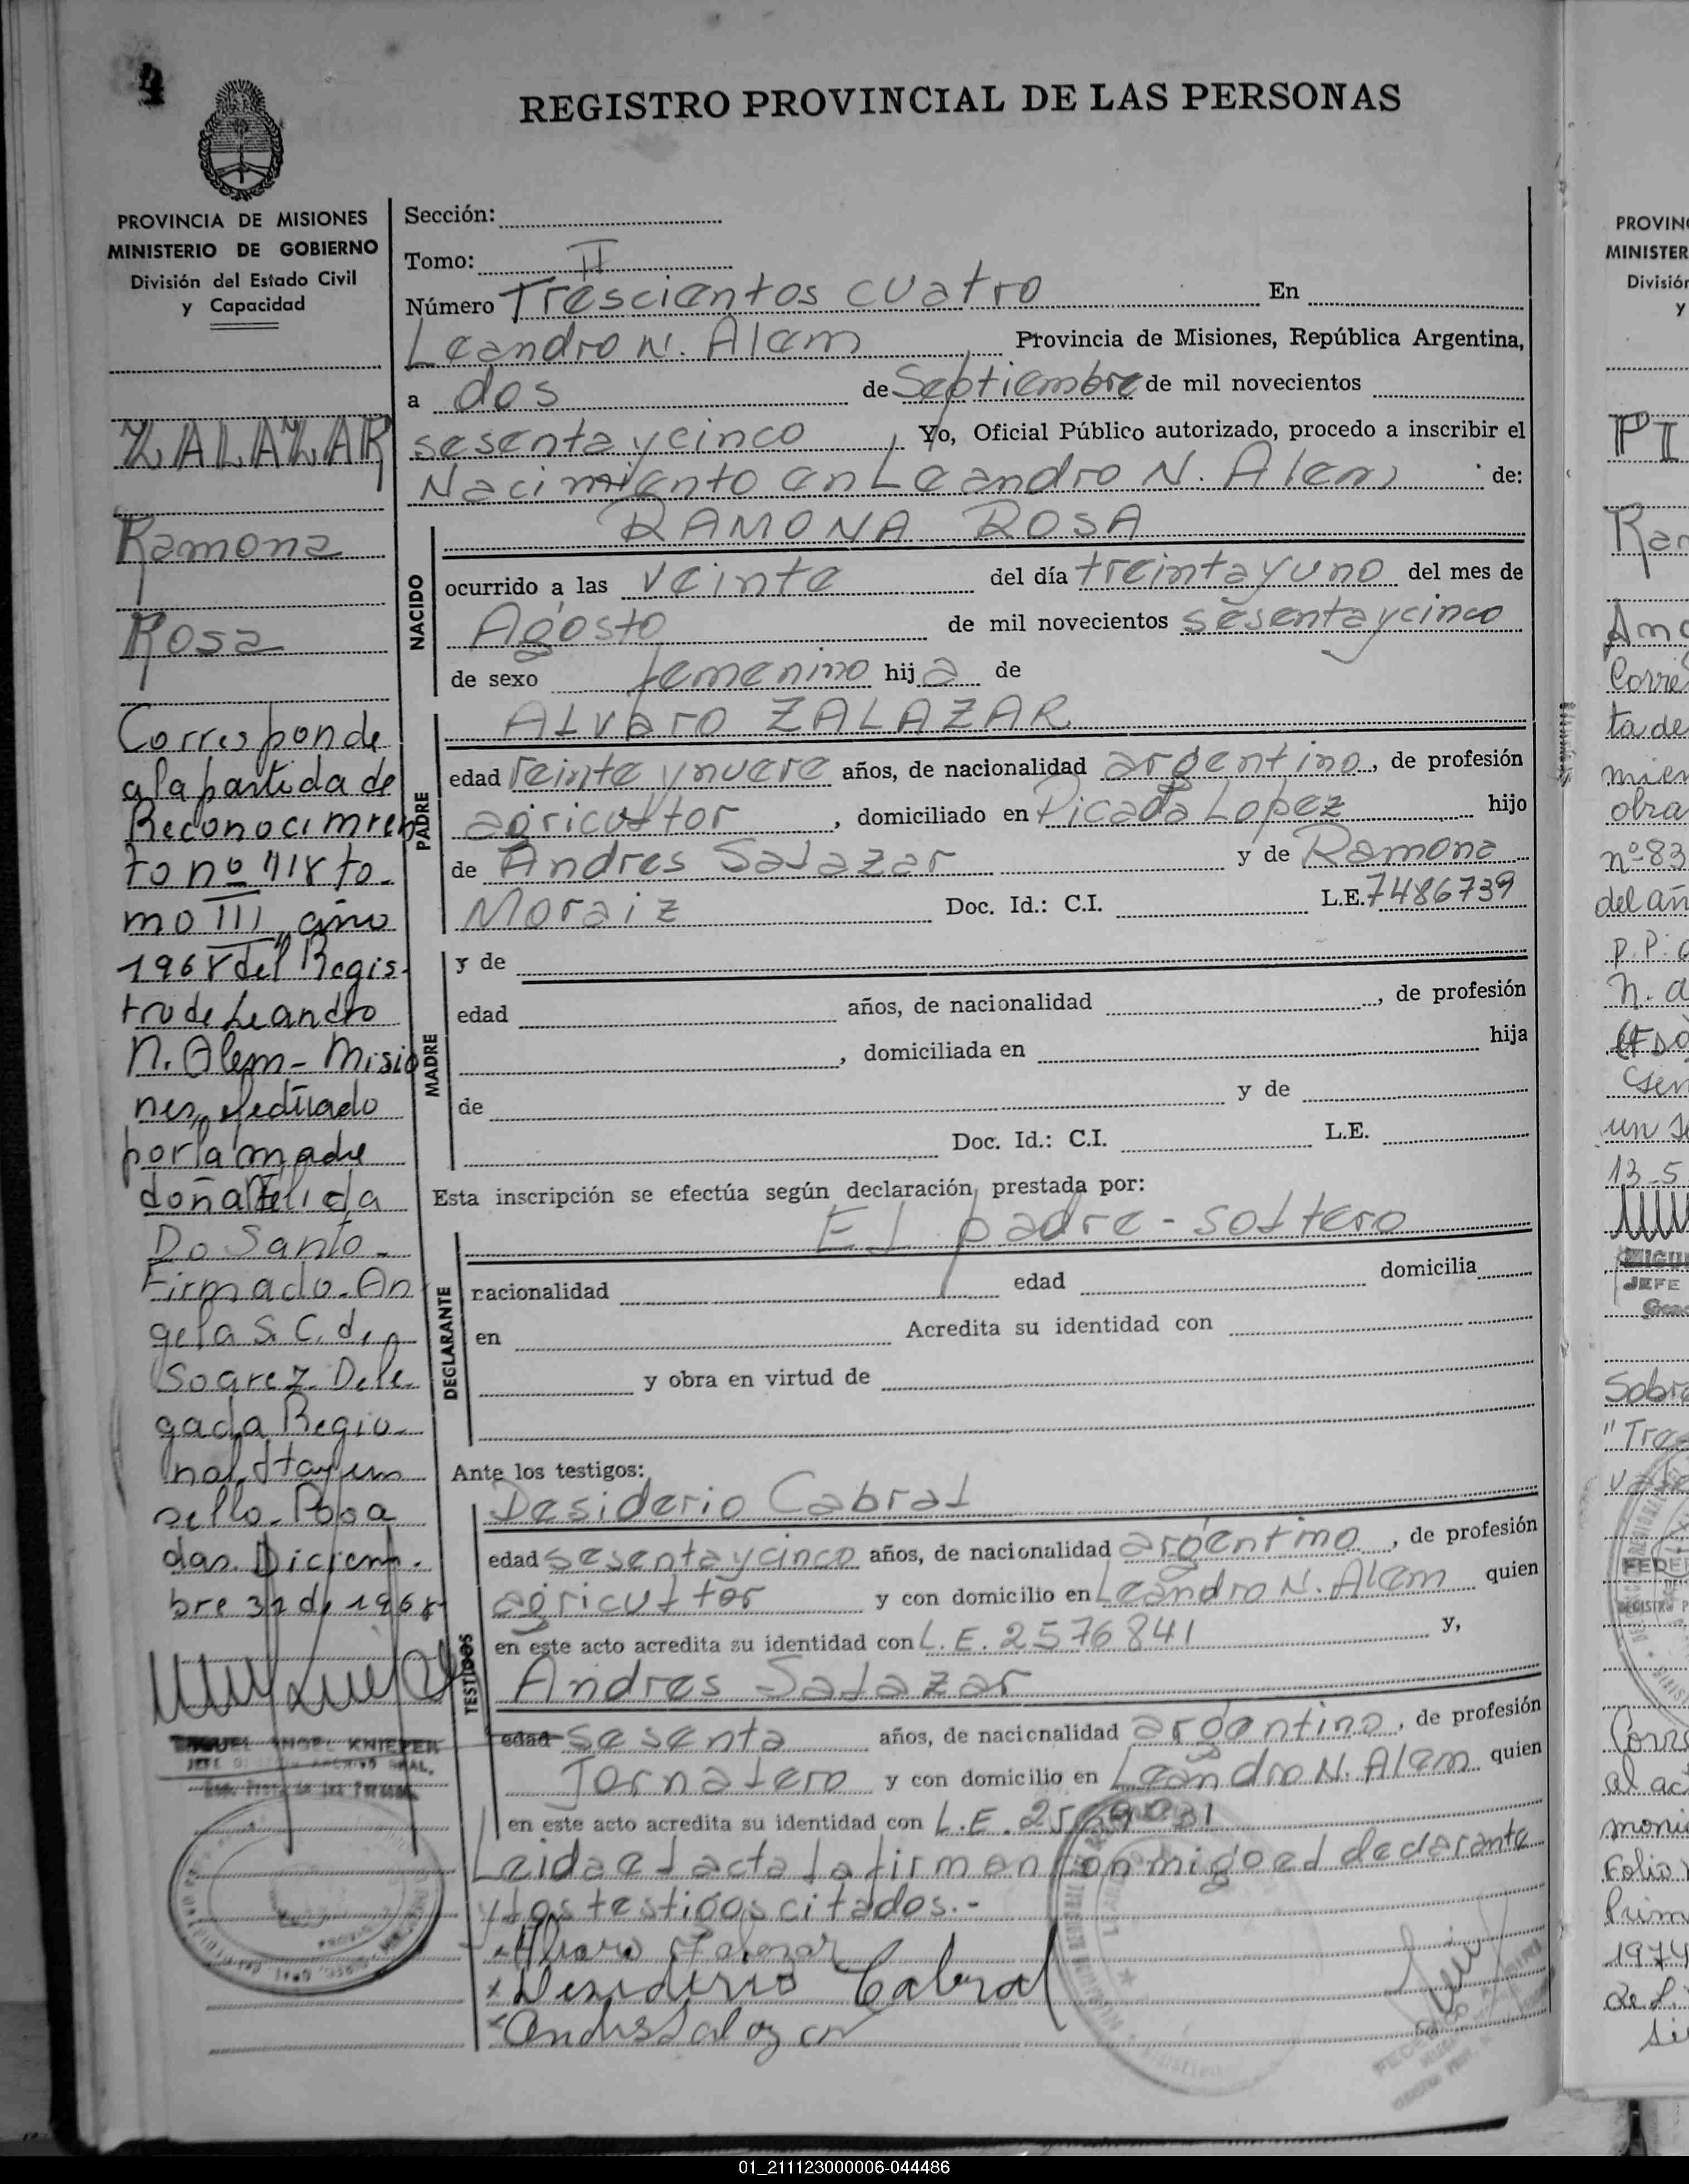 4
REGISTRO PROVINCIAL DE LAS PERSONAS
PROVINCIA DE MISIONES
MINISTERIO DE GOBIERNO
División del Estado Civil
y Capacidad
ZALAZAR
Ramona
Rosa
Corresponde
a la partida de
Reconocimien
to nº 418 to-
mo III, año
1968 del Regis-
tro de Leandro
N. Alem - Misio
nes, efectuado
por la madre
doña
Do Santo-
Firmado. An
gela S. C. de
Soarez Dele-
gada Regio-
nal. Hay un
sello. Posa
das. Diciem-
bre 31 de 1968
MIGUEL ANGEL KNIEPER
Sección:
Tomo: II
Número Trescientos cuatro En
Leandro N. Alem Provincia de Misiones, República Argentina,
a dos de Septiembre de mil novecientos
sesenta y cinco, Yo, Oficial Público autorizado, procedo a inscribir el
Nacimiento en Leandro N. Alem de:
RAMONA ROSA
NACIDO
ocurrido a las veinte del día treinta y uno del mes de
Agosto de mil novecientos sesenta y cinco
de sexo femenino hija de
Alvaro ZALAZAR
PADRE
edad veinte y nueve años, de nacionalidad argentino, de profesión
agricultor, domiciliado en Picada Lopez hijo
de Andres Salazar y de Ramona
Moraiz Doc. Id.: C.I. L.E. 7486739
MADRE
y de
edad años, de nacionalidad , de profesión
, domiciliada en hija
de y de
Doc. Id.: C.I. L.E.
Esta inscripción se efectúa según declaración prestada por:
El padre - soltero
DECLARANTE
nacionalidad edad domicilia
en Acredita su identidad con
y obra en virtud de
Ante los testigos:
TESTIGOS
Desiderio Cabral
edad sesenta y cinco años, de nacionalidad argentino, de profesión
agricultor y con domicilio en Leandro N. Alem quien
en este acto acredita su identidad con L.E. 2576841 y,
Andres Salazar
edad sesenta años, de nacionalidad argentino, de profesión
Jornalero y con domicilio en Leandro N. Alem quien
en este acto acredita su identidad con L.E.
Leida el acta la firman conmigo el declarante
y los testigos citados.-
Alvaro Zalazar
x Desiderio Cabral
x Andres Salazar
PROVIN
MINISTER
División
y
Ram
Corre
ta de
mien
obra
nº 83
del añ
13-5
JEFE
Sobre
1974
01_211123000006-044486